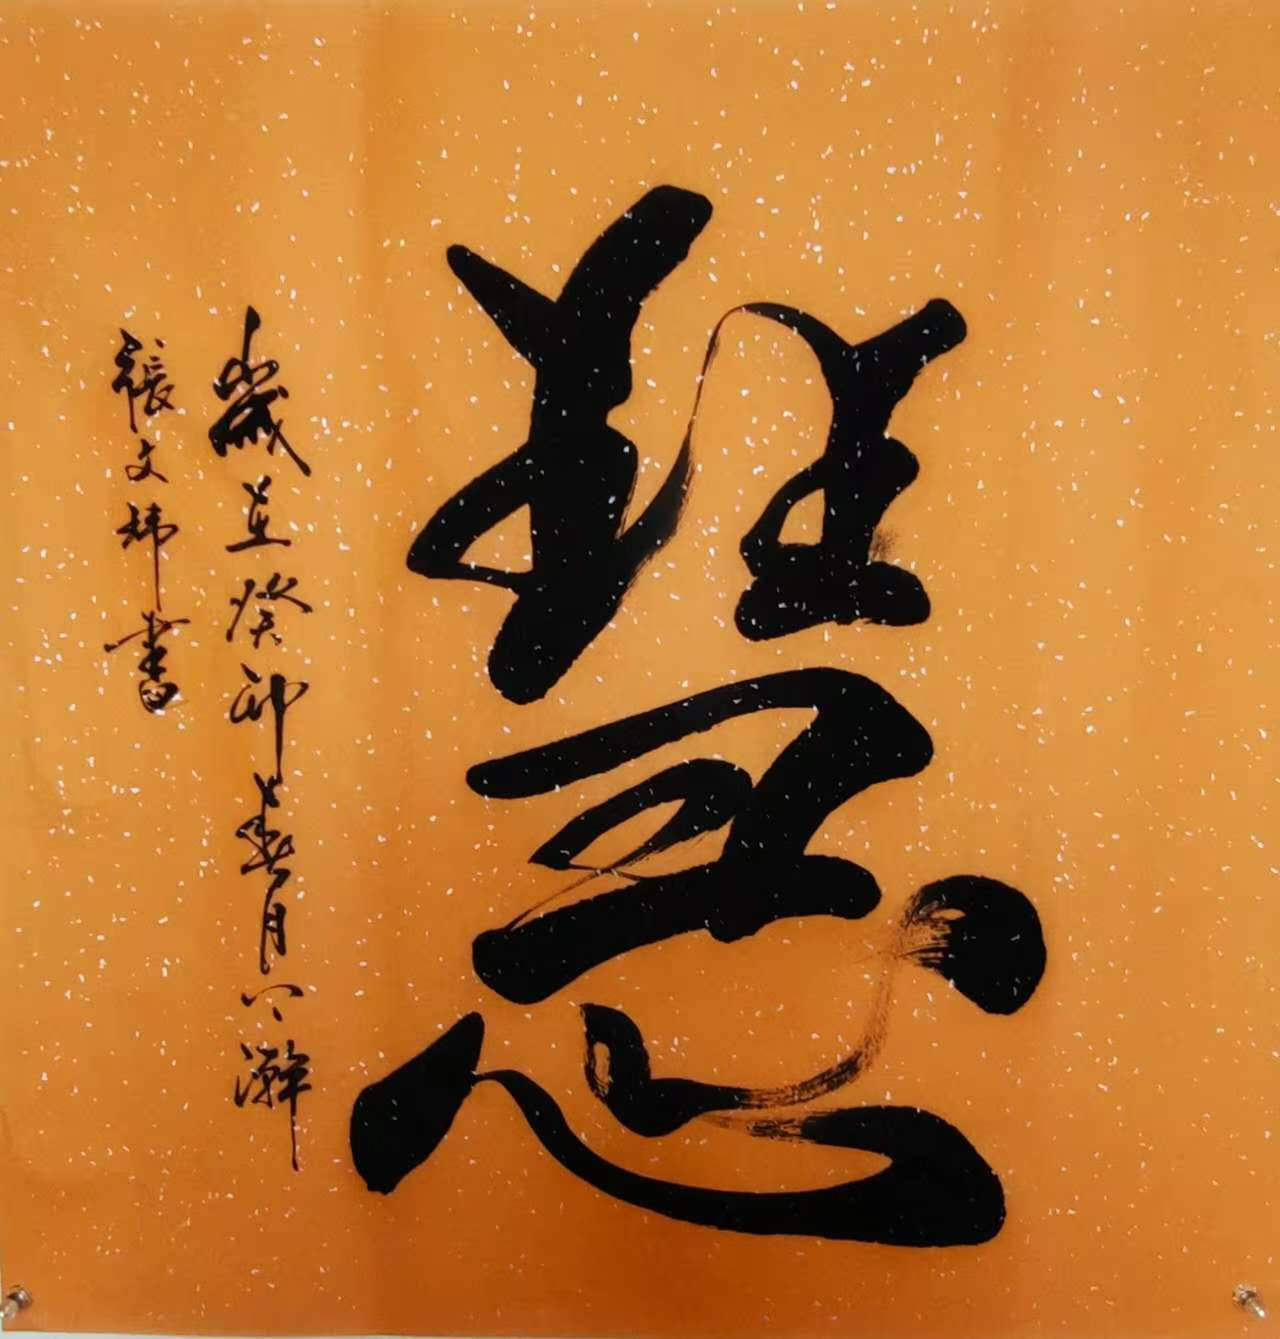 慧
歲在癸卯春月八瀚
張文煒書